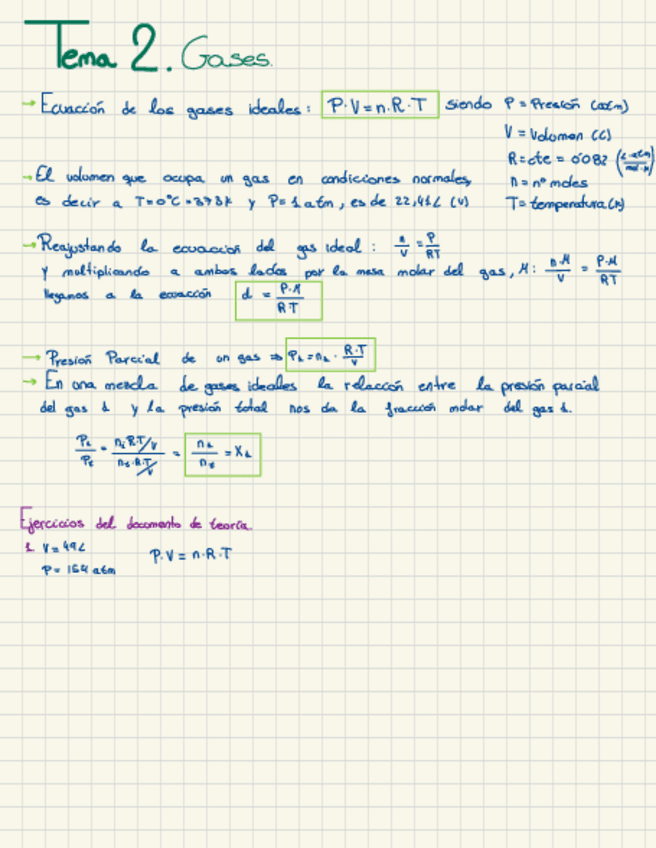 Tema 2. Gases.
→ Ecuación de los gases ideales: P·V = n.R.T siendo P = Presión (atm)
V = Volomen (L)
R = cte = 0'082 (L·atm/mol·K)
n = nº moles
T = temperatura (K)
→ El volumen que ocupa un gas en condiciones normales,
es decir a T=0ºC=373K y P=1 atm, es de 22,41L (V)
→ Reajustando la ecuación del gas ideal: n/V = P/RT
y moltiplicando a ambos lados por la masa molar del gas, M: n.M/V = P.M/RT
llegamos a la ecuación d = P.M/RT
→ Presión Parcial de un gas ⇒ P1 = n1 · R.T/V
→ En una mezcla de gases ideales la relacción entre la presión parcial
del gas 1 y la presión total nos da la fracción molar del gas 1.
P1/Pt = n1.R.T/V / nt.R.T/V = n1/nt = X1
Ejercicios del documento de teoría.
1. V = 49L P.V = n.R.T
P = 154 atm